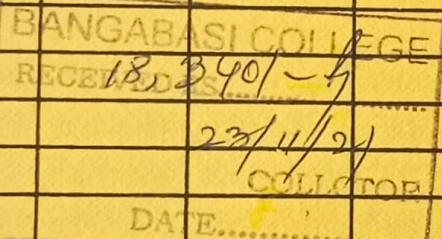 BANGABASI COLLEGE
RECEIVED RS..............
18,340/-
23/11/21
COLLCTOR
DATE..............